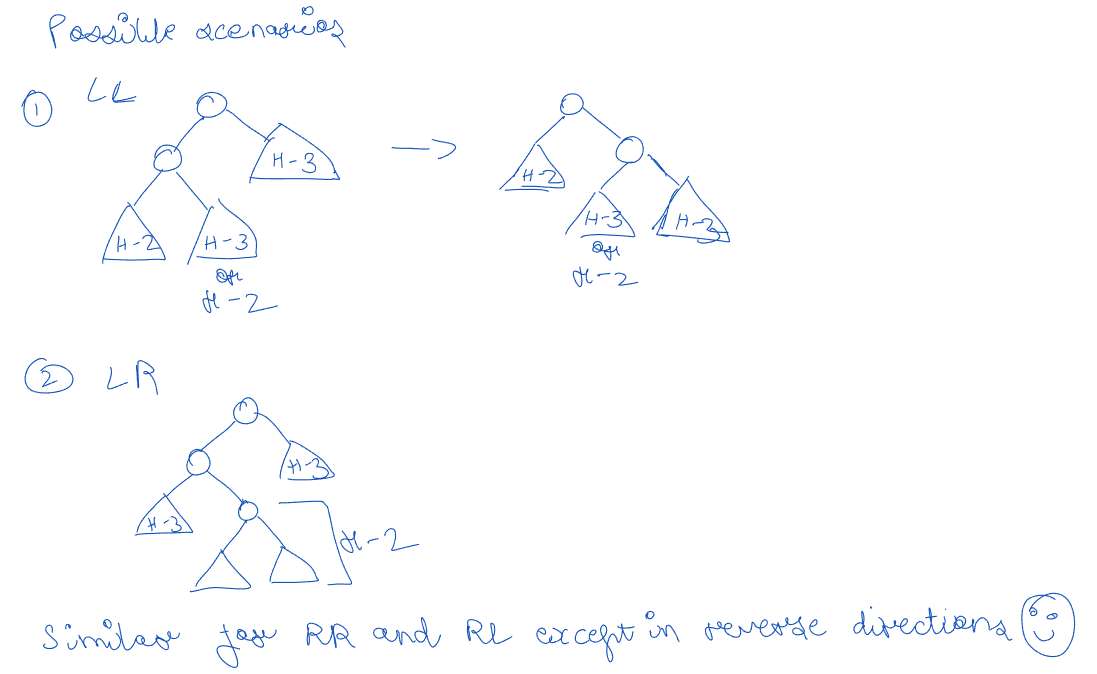 Possible scenarios
① LL
H-3
H-2
H-3
or
H-2
H-2
H-3
or
H-2
H-3
② LR
H-3
H-3
H-2
Similar for RR and RL except in reverse directions